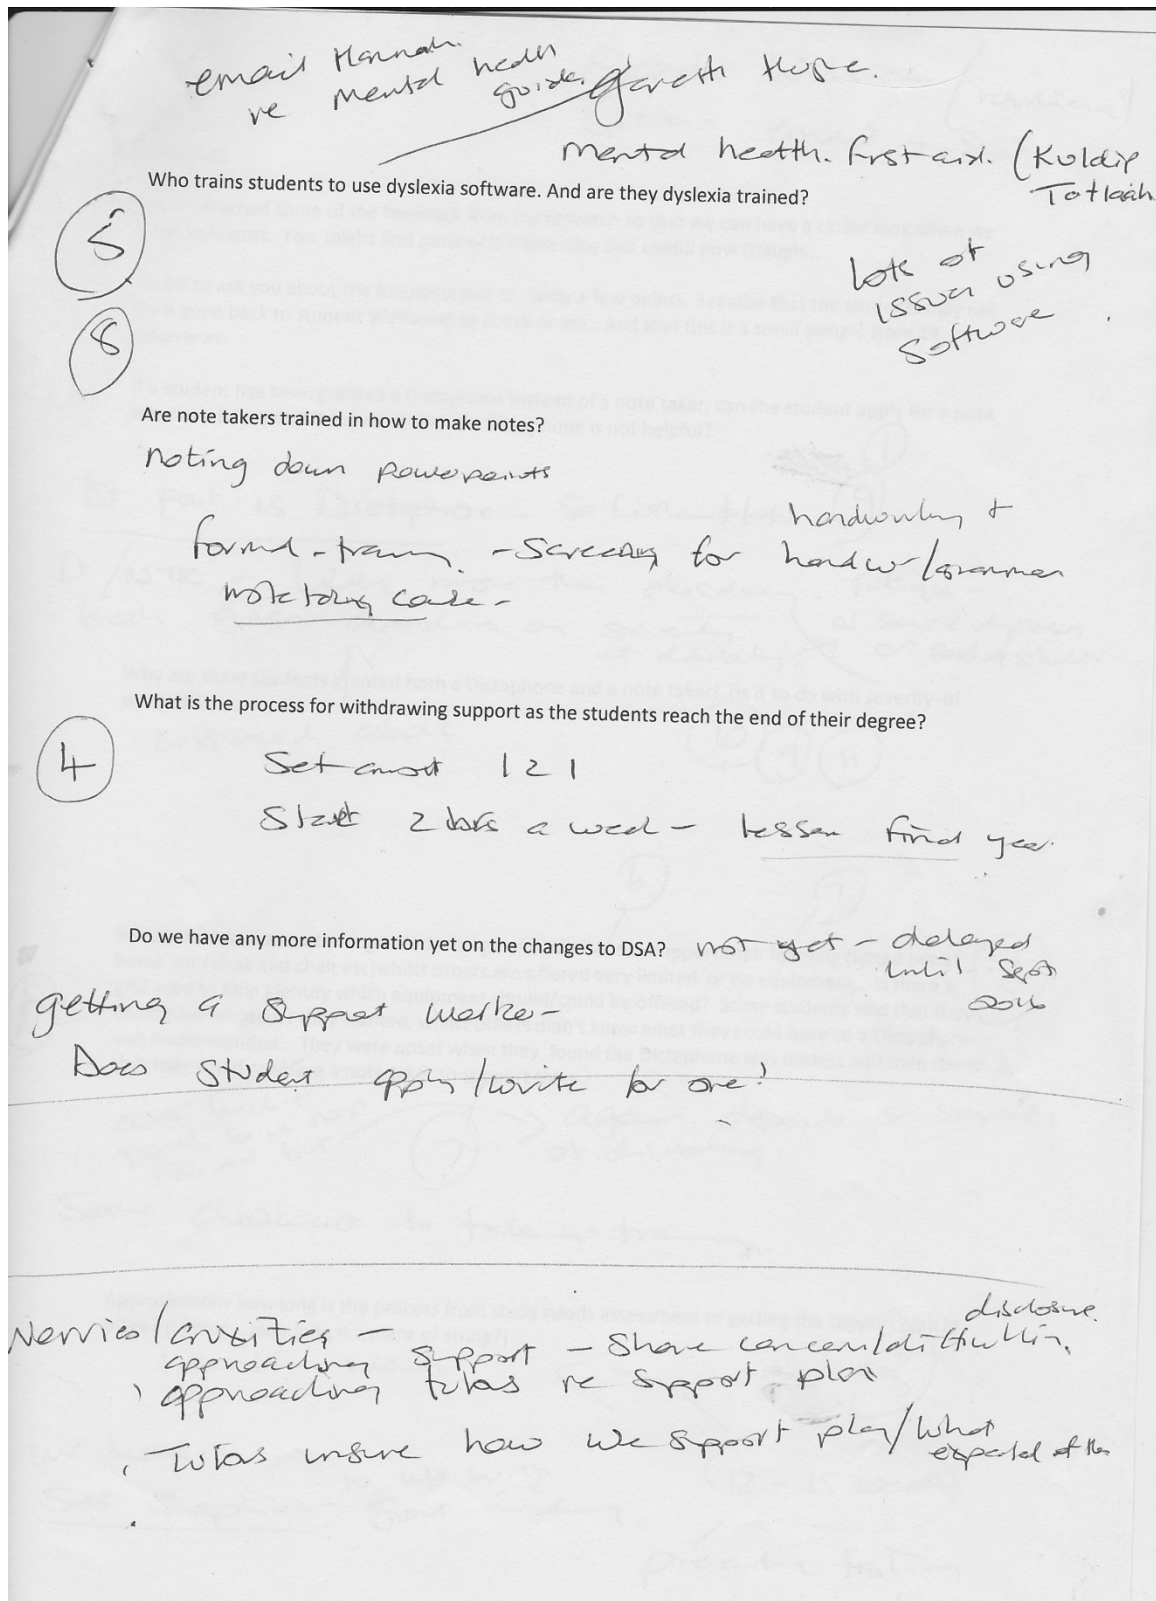 email Hannah.
re mental health
guide. Gareth Hughe.
mental health. first aid. (Kuldip
Who trains students to use dyslexia software. And are they dyslexia trained?
5
lots of
issues using
software
8
Are note takers trained in how to make notes?
noting down powerpoints
handwriting +
formal - training. - screening for handw/grammar
notetaking
What is the process for withdrawing support as the students reach the end of their degree?
4
Set amount 121
Start 2 hrs a week - lessen final year.
Do we have any more information yet on the changes to DSA? not yet - delayed
until Sept
2016
getting a support worker -
Does student apply/write for one?
disclosure.
Nerves/anxieties -
approaching support - share concern/difficulties.
approaching tutors re support plan
Tutors unsure how we support plan/what
expected of them